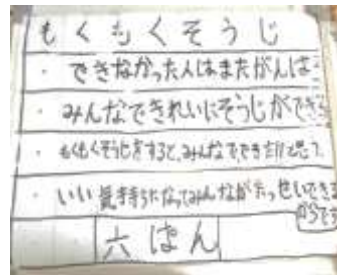 もくもくそうじ
・できなかった人はまたがんば
・みんなできれいにそうじができ
・もくもくそうじをすると、みんなで
・いい気持ちになってみんなが
からです
六ぱん